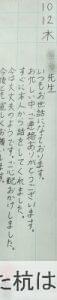 10
12
木
先生
いつもお世話になっております。
お忙しい中ご連絡ありがとうございます。
すぐに本人から話をしてくれました。
今は大丈夫のようです。ご心配おかけしました。
今後も
た杭は